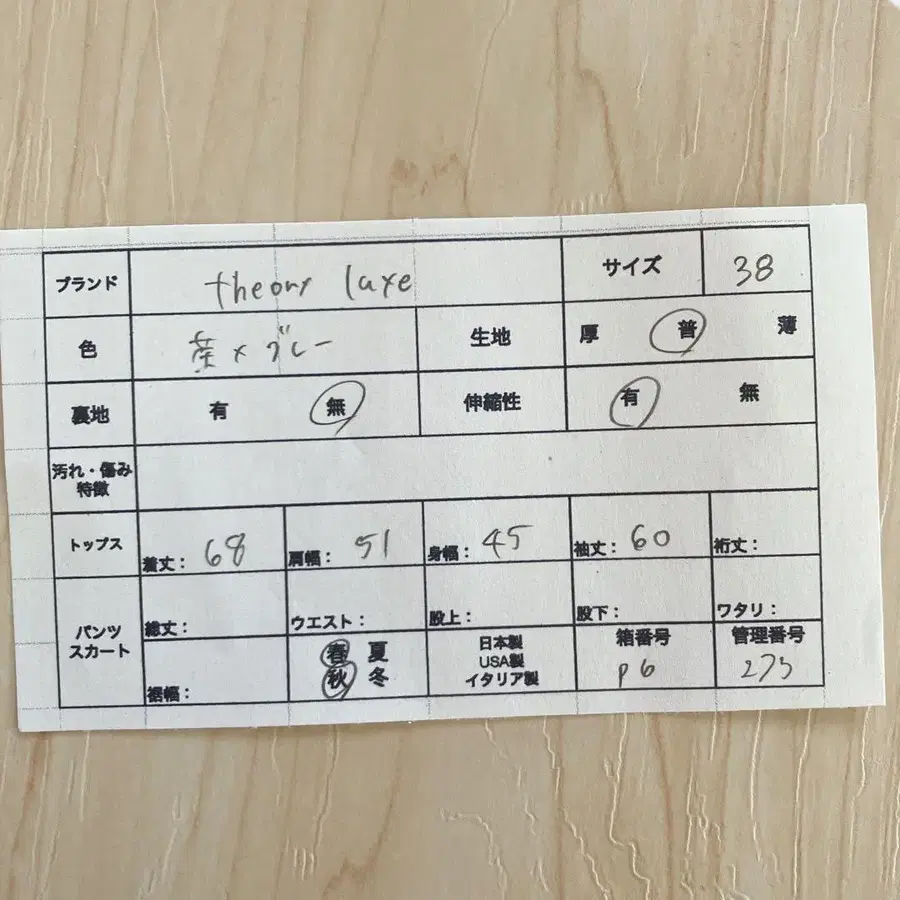 ブランド theory luxe サイズ 38
色 茶×グレー 生地 厚 普 薄
裏地 有 無 伸縮性 有 無
汚れ・傷み
特徴
トップス 着丈: 68 肩幅: 51 身幅: 45 袖丈: 60 裄丈:
パンツ
スカート
総丈: ウエスト: 股上: 股下: ワタリ:
裾幅:
春 夏
秋 冬
日本製
USA製
イタリア製
箱番号
P6
管理番号
273